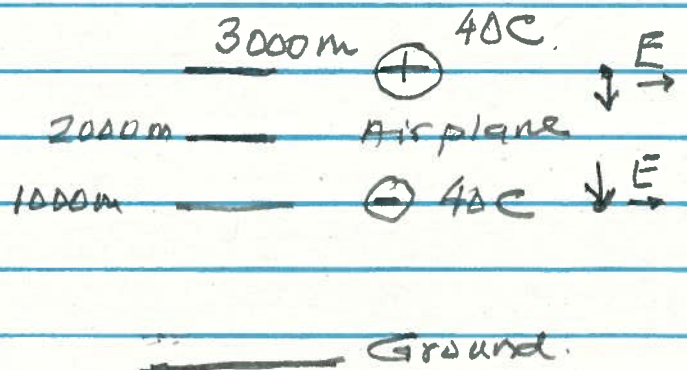 3000m 40C.
E
2000m Airplane
1000m 40C E
Ground.